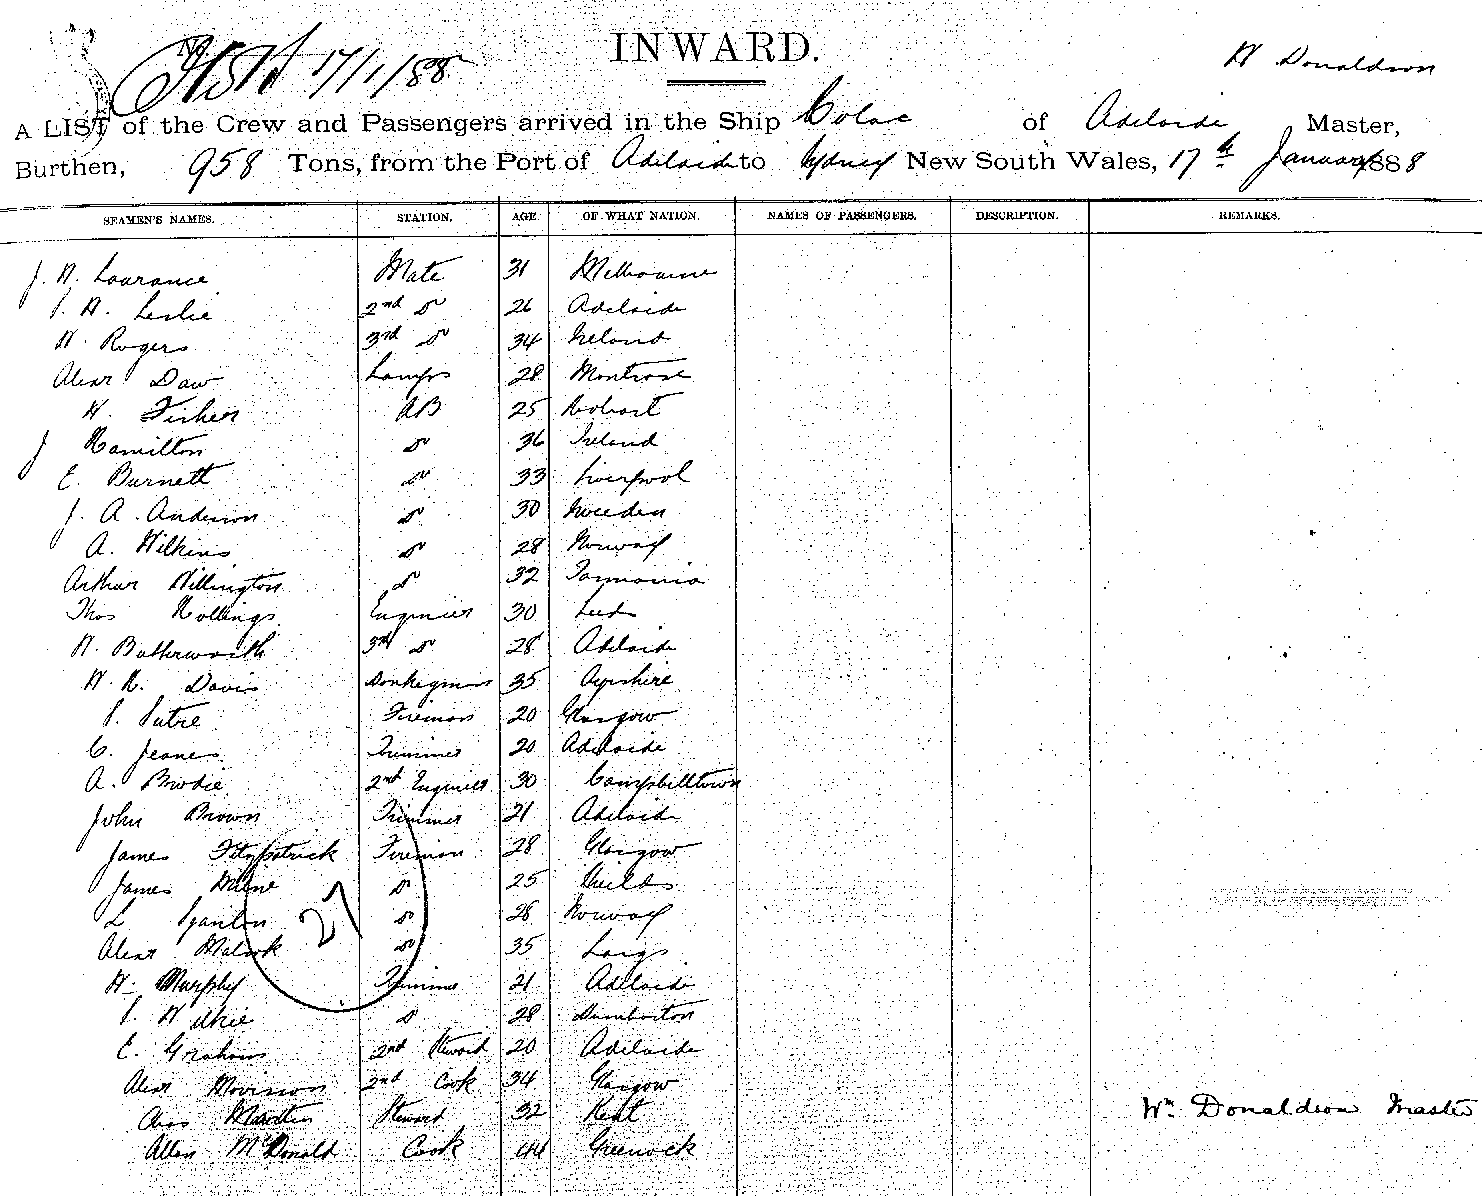 17/1/88
INWARD.
W Donaldson
A LIST of the Crew and Passengers arrived in the Ship Colac of Adelaide Master,
Burthen, 958 Tons, from the Port of Adelaide to Sydney New South Wales, 17th January 1888
SEAMEN'S NAMES. STATION. AGE. OF WHAT NATION. NAMES OF PASSENGERS. DESCRIPTION. REMARKS.
J. W. Lawrance Mate 31 Melbourne
J. W. Leslie 2nd Do 26 Adelaide
W. Rogers 3rd Do 34 Ireland
Alexr Daw Lamps 28 Montrose
W. Fisher AB 25 Hobart
J Hamilton Do 36 Ireland
E. Burnett Do 33 Liverpool
J. A. Anderson Do 30 Sweden
A. Wilkins Do 28 Norway
Arthur Willington Do 32 Tasmania
Thos Hollings Engineer 30 Leeds
W. Butterworth 3rd Do 28 Adelaide
W. H. Davis Donkeyman 35 Ayrshire
P. Fireman 20 Glasgow
C. Jeanes Trimmer 20 Adelaide
A. Brodie 2nd Engineer 30 Campbelltown
John Brown Trimmer 21 Adelaide
James Fitzpatrick Fireman 28 Glasgow
James Milne Do 25 Shields
27
L Do 28 Norway
Alexr Do 35 Largs
W. Murphy Trimmer 21 Adelaide
P. Wilkie Do 28 Dumbarton
E. Graham 2nd Steward 20 Adelaide
Alexr Morrison 2nd Cook 34 Glasgow
Martin Steward 32 Kent
Wm Donaldson Master
Allan McDonald Cook 44 Greenock